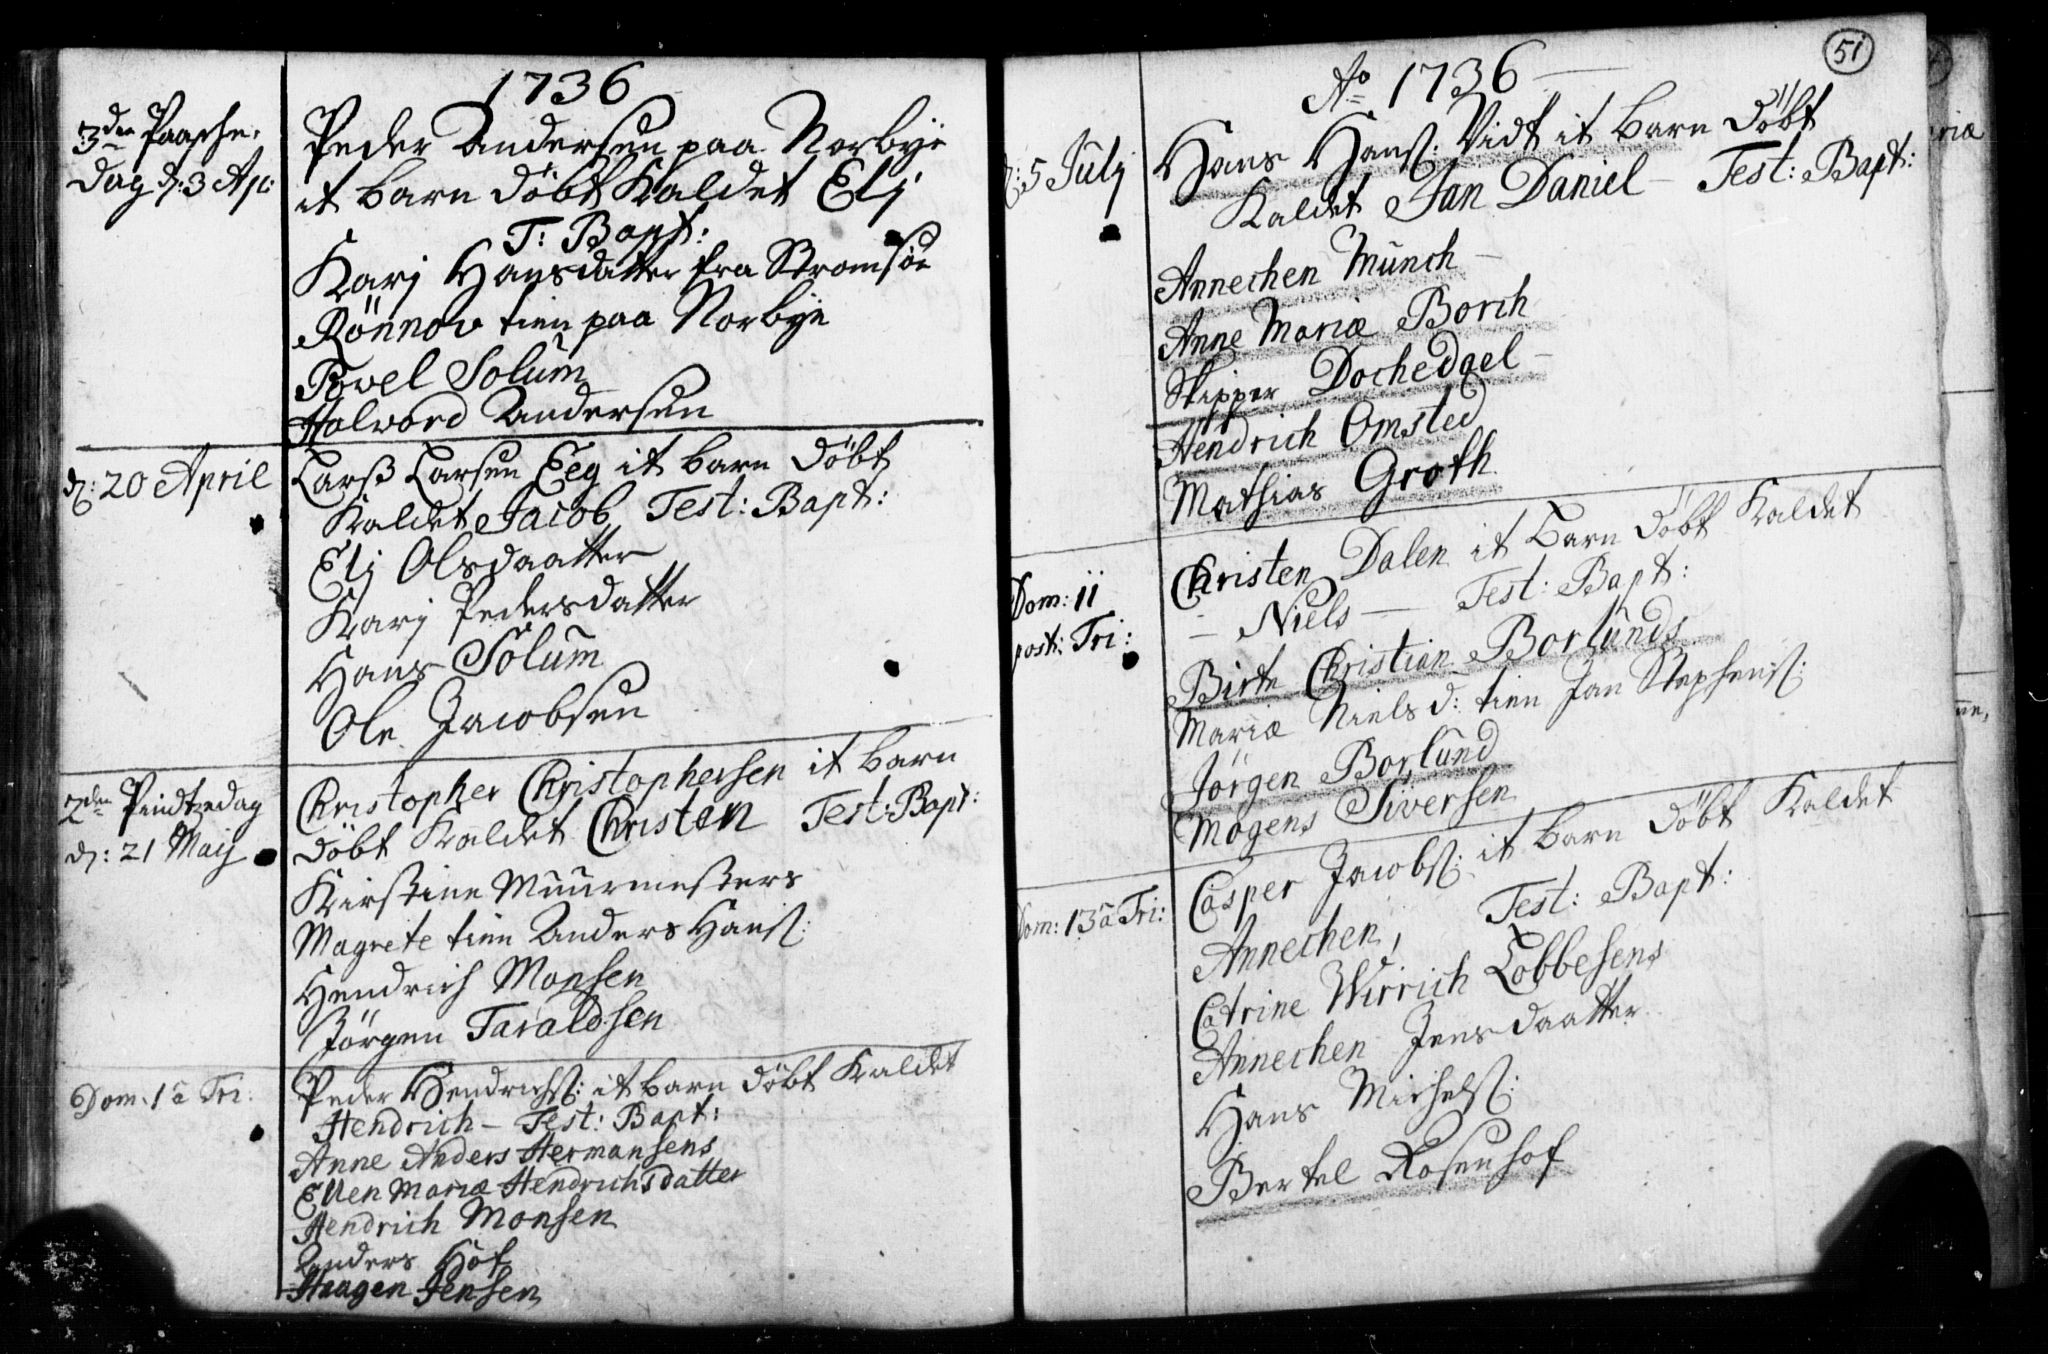 1736
3den Paasche-
dag d: 3 Apr:
Peder Andersen paa Norbye
it barn döbt Kaldet Elj
T: Bapt:
Karj Hansdatter fra Stromsöe
Rönnov tien paa Norbye
Powel Solum
Halword Andersen
d: 20 April
Larss Larsen Eeg it barn döbt
Kaldet Jacob Test: Bapt:
Elj Olsdaatter
Karj Pedersdatter
Hans Solum
Ole Jacobsen
2den Pindtzedag
d: 21 Maij
Christopher Christophersen it barn
döbt Kaldet Christen Test: Bapt:
Kirstine Muurmesters
Magrete tien Anders Hans:
Hendrich Monsen
Jörgen Taraldsen
Dom: 1 a Tri:
Peder Hendrichs: it barn döbt Kaldet
Hendrich – Test: Bapt:
Anne Anders Hermansens
Ellen Mariæ Hendrichsdatter
Hendrich Monsen
Anders Hof
Haagen Jensen
51
Ao 1736
d: 5 Julj
Hans Hans: Vidt it barn döbt
Kaldet Jan Daniel – Test: Bapt:
Annechen Munch –
Anne Mariæ Borch
Skipper Dochedael –
Hendrich Omsted
Mathias Groth
Dom: 11
post: Tri:
Christen Dalen it barn döbt Kaldet
– Niels – Test: Bapt:
Birte Christian Borlunds
Mariæ Niels d: tien Jan Stephens:
Jörgen Borlund
Mogens Siversen
Dom: 13 a Tri:
Casper Jacobs: it barn döbt Kaldet
Annechen, Test: Bapt:
Catrine Wirrich Lobbesens
Annechen Jensdaatter
Hans Michels:
Bertel Rosenhof
riæ
ne,